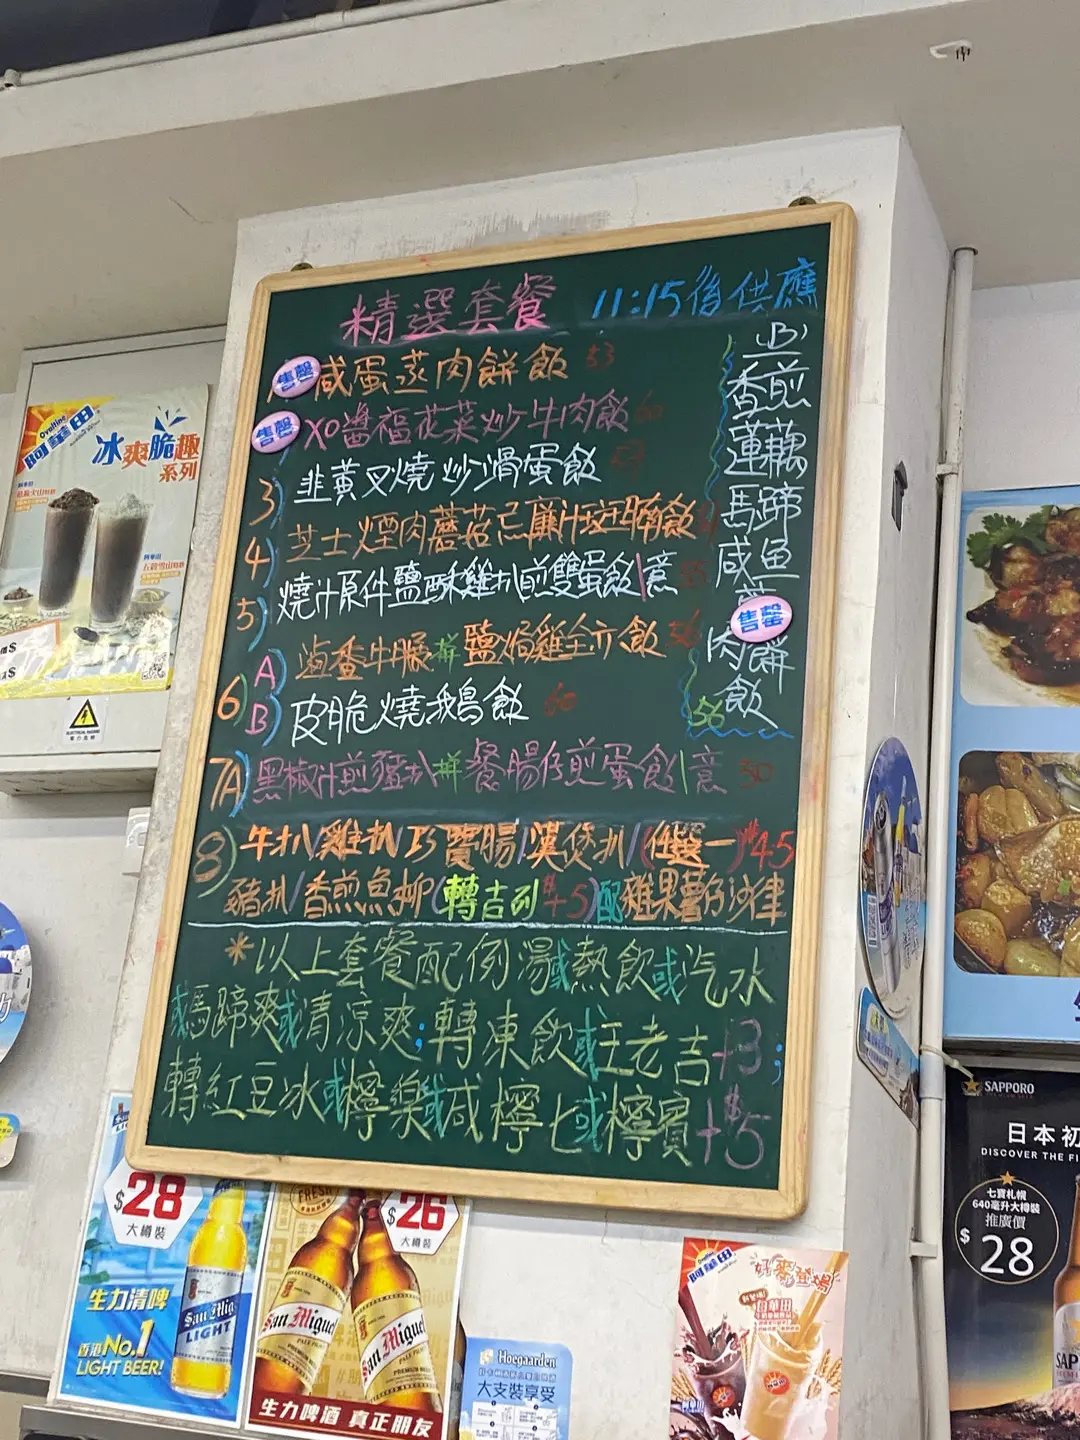 精選套餐 11:15後供應
售罄 咸蛋蒸肉餅飯 53
售罄 XO醬福花菜炒牛肉飯 60
3) 韭黃叉燒炒滑蛋飯
4) 芝士煙肉蘑菇忌廉汁斑腩飯
5) 燒汁原件鹽酥雞扒煎雙蛋飯/意 55
6) A) 滷香牛𦟌拼鹽焗雞全亦飯 56
B) 皮脆燒鵝飯 60
7A) 黑椒汁煎豬扒拼餐腸仔煎蛋飯/意 50
B)
香煎蓮藕馬蹄咸魚
售罄
肉餅飯
56
8) 牛扒/雞扒/芝寶腸/漢煲扒/(任選一) $45
豬扒/香煎魚柳(轉吉列$+5)配雜果薯仔沙律
*以上套餐配例湯或熱飲或汽水
或馬蹄爽或清涼爽;轉凍飲或王老吉+3;
轉紅豆冰或檸樂或咸檸七或檸賓+$5
Ovaltine
阿華田
冰爽脆趣
系列
ELECTRICAL HAZARD
電力危險
$28
大樽裝
生力清啤
香港No.1
LIGHT BEER!
San Mig
LIGHT
FRESH
$26
大樽裝
San Miguel
PALE PILSEN
San Miguel
PALE PILSEN
生力啤酒 真正朋友
Hoegaarden
大支裝享受
Ovaltine
阿華田
好麥登場
SAPPORO
日本初
DISCOVER THE FI
七寶札幌
640毫升大樽裝
推廣價
$28
SAP